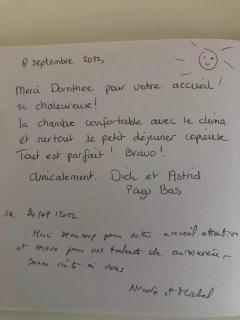 8 septembre 2022,
Merci Dorothee pour votre accueil
si chaleureuse!
la chambre confortable avec le clima
et surtout le petit déjeuner copieuse
Tout est parfait! Bravo!
Amicalement. Dick et Astrid
Pays Bas
Le 21/09/2022
Merci beaucoup pour votre accueil attention
et pour vos de cuisinière.
Bonne suite à vous
Nicole et Michel